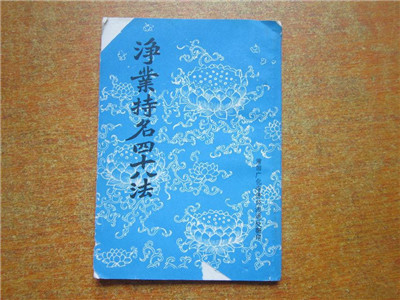 淨業持名四十八法